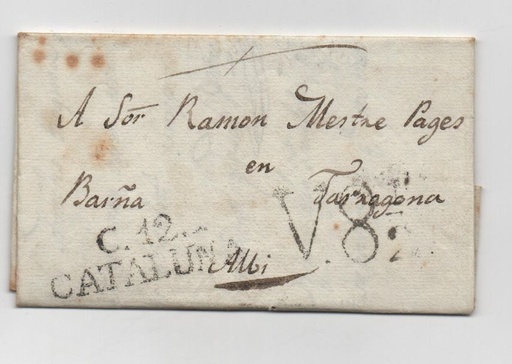 A Sor Ramon Mestre Pages
en
Barña Tarragona
V8
C.12.
CATALUÑA
Albi